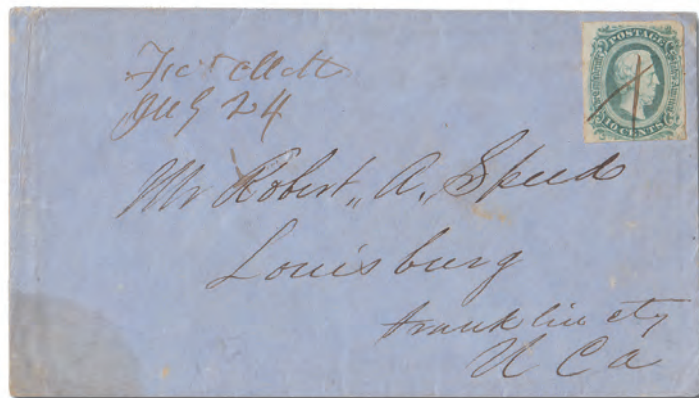 POSTAGE
10 CENTS
24
Mr Robert, A, Speed
Louisburg
Franklin cty
N Ca